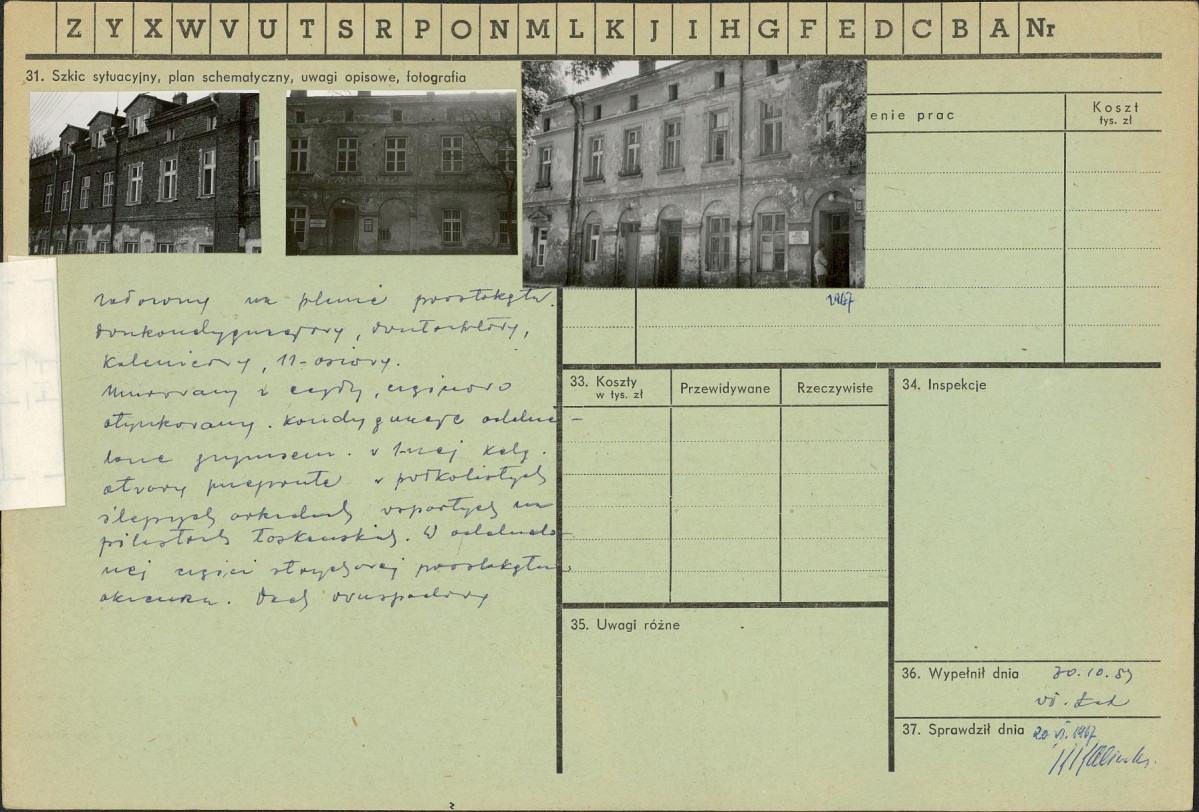 Z Y X W V U T S R P O N M L K J I H G F E D C B A Nr
31. Szkic sytuacyjny, plan schematyczny, uwagi opisowe, fotografia
enie prac
Koszt
tys. zł
1967
na planie prostokąta.
dwukondygnacyjowy, dwutraktowy,
kalenicowy, 11-osiowy.
Murowany z cegły, częściowo
otynkowany. Kondygnacje oddzie-
lone gzymsem. W 1-szej kdg.
otwory przeprute w półkolistych
ślepych arkadach wspartych na
pilastrach toskańskich. W oddzielo-
nej części strychowej prostokątne
okienka. Dach dwuspadowy
33. Koszty
w tys. zł
Przewidywane
Rzeczywiste
34. Inspekcje
35. Uwagi różne
36. Wypełnił dnia 30.10.59
37. Sprawdził dnia 20 VI. 1967